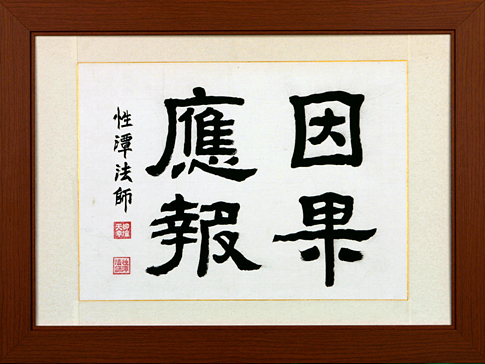 因果
應報
性潭法師